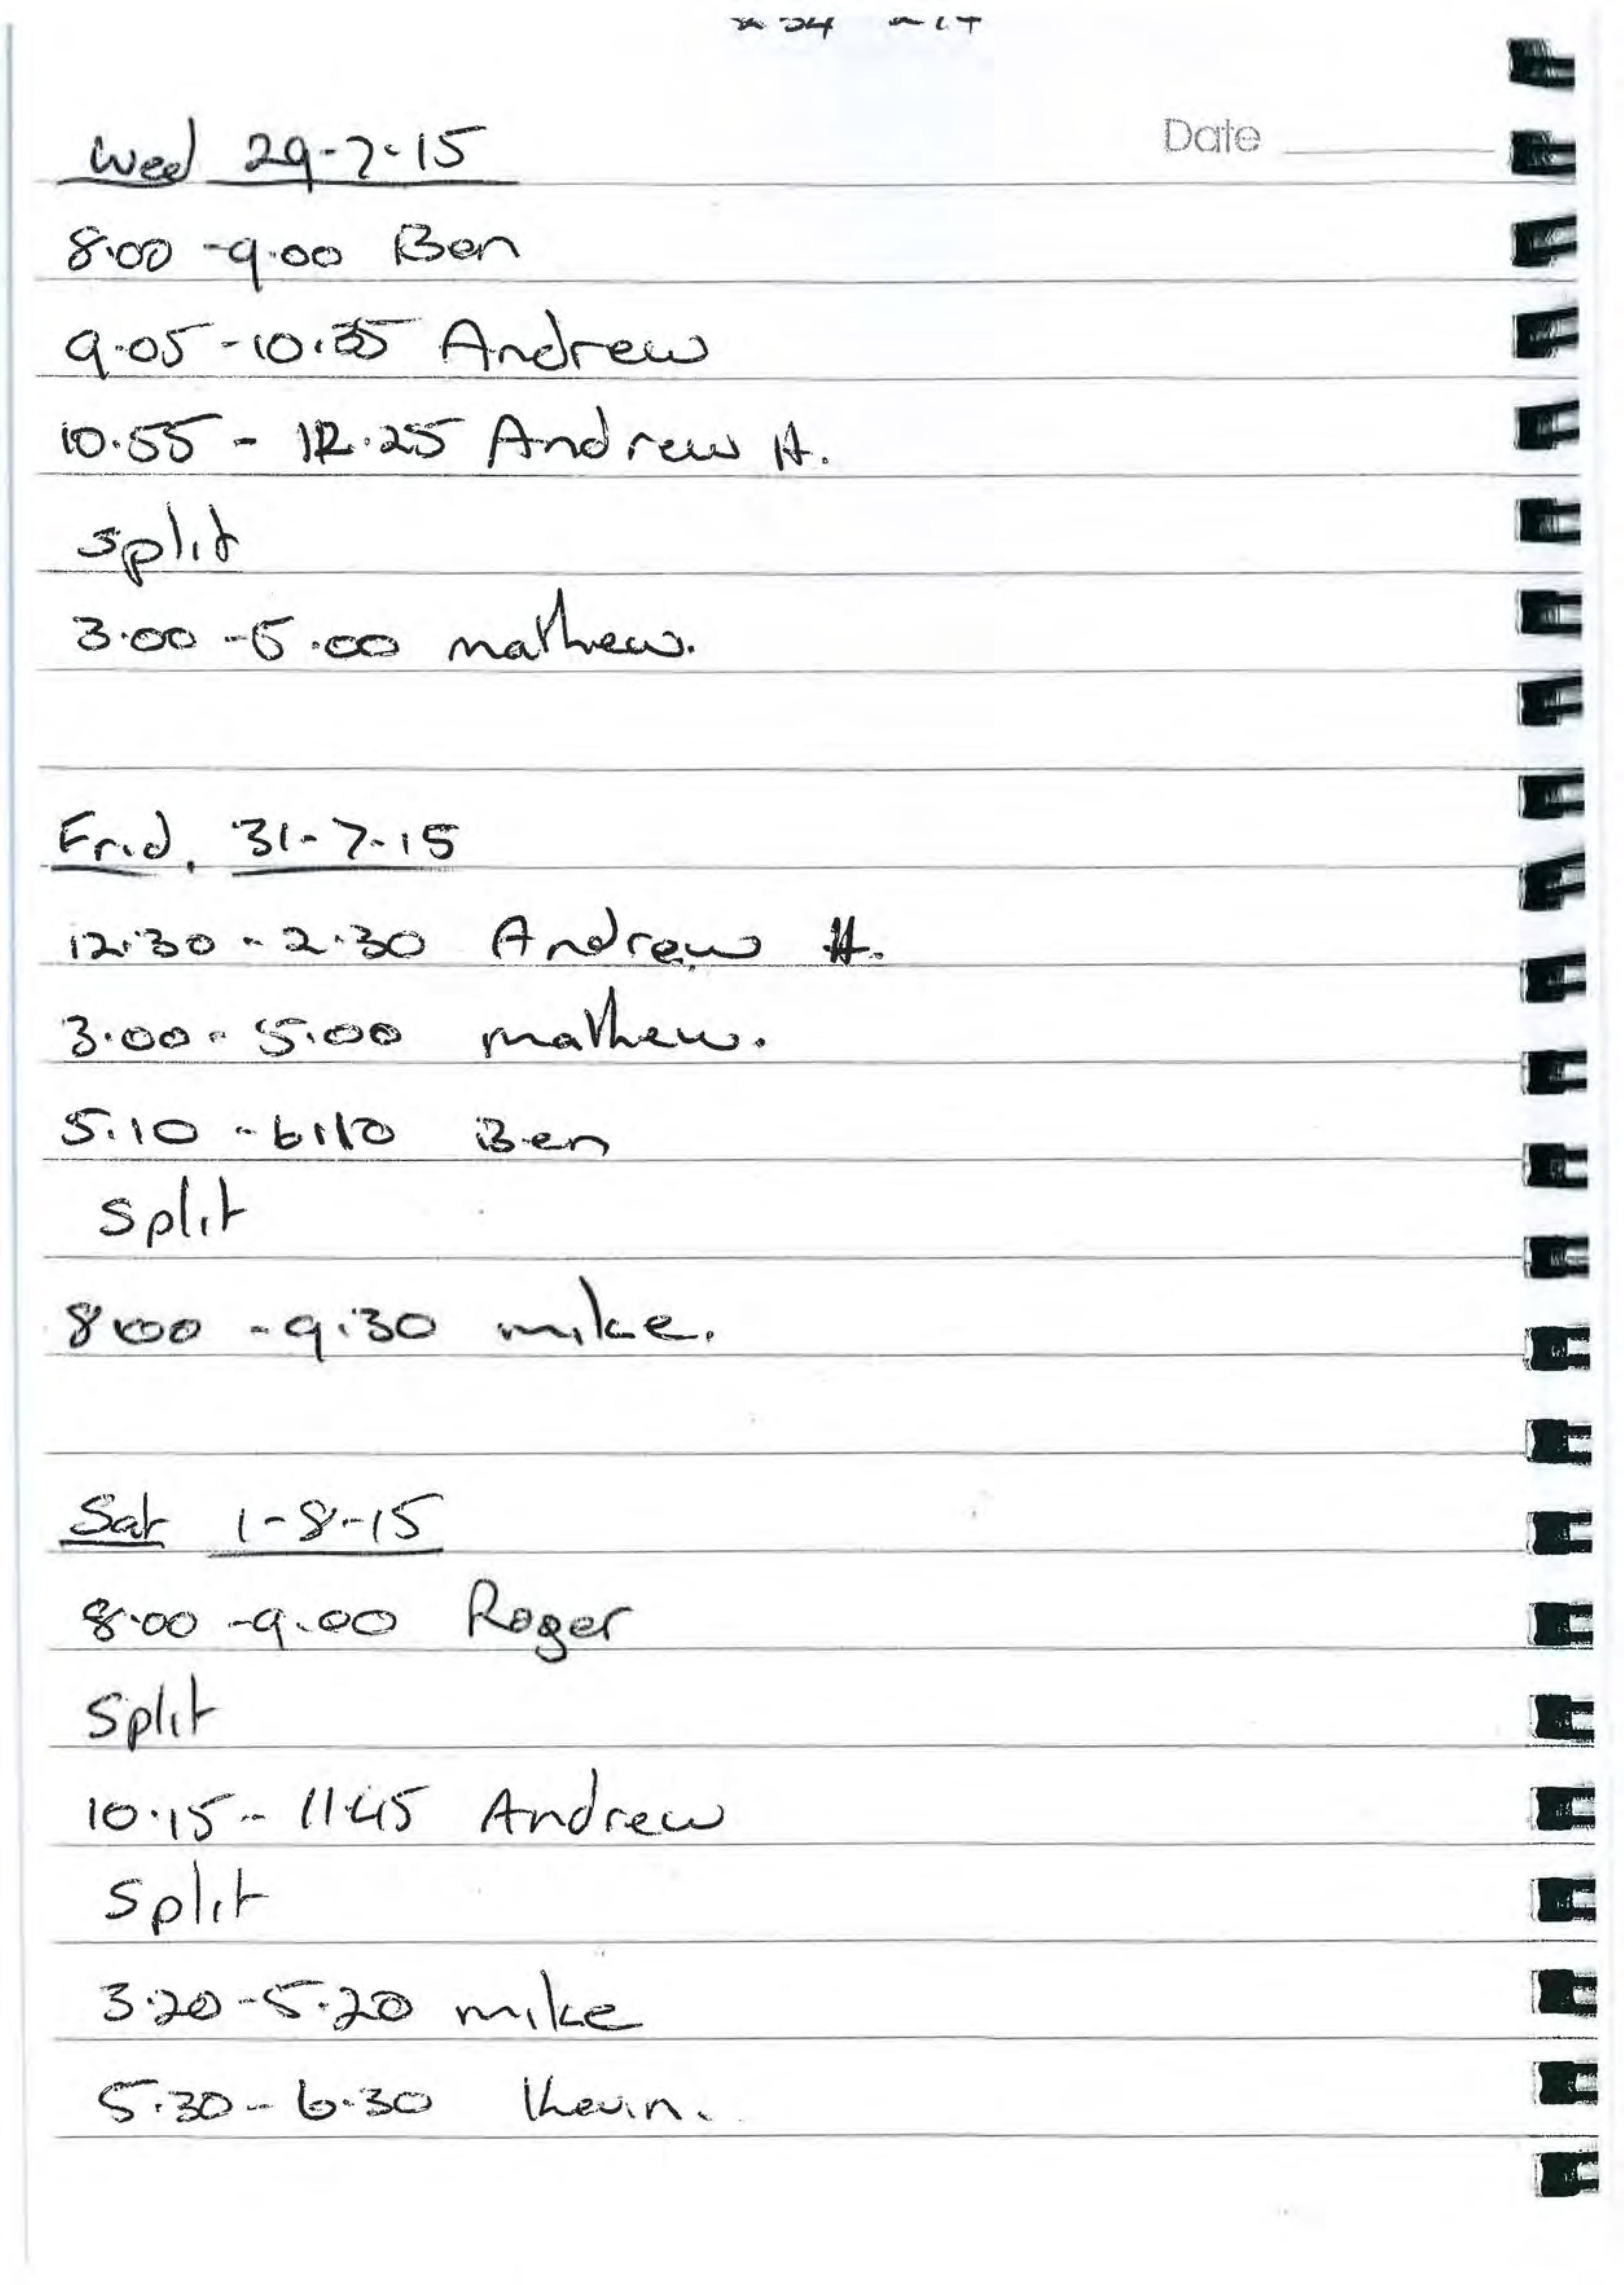 Date
Wed 29-7-15
8.00 - 9.00 Ben
9.05 - 10.35 Andrew
10.55 - 12.25 Andrew H.
split
3.00 - 5.00 mathew.
Frid. 31-7-15
12.30 - 2.30 Andrew H.
3.00 - 5.00 mathew.
5.10 - 6.10 Ben
split
8.00 - 9.30 mike.
Sat 1-8-15
8.00 - 9.00 Roger
Split
10.15 - 11.45 Andrew
Split
3.20 - 5.20 mike
5.30 - 6.30 Kevin.